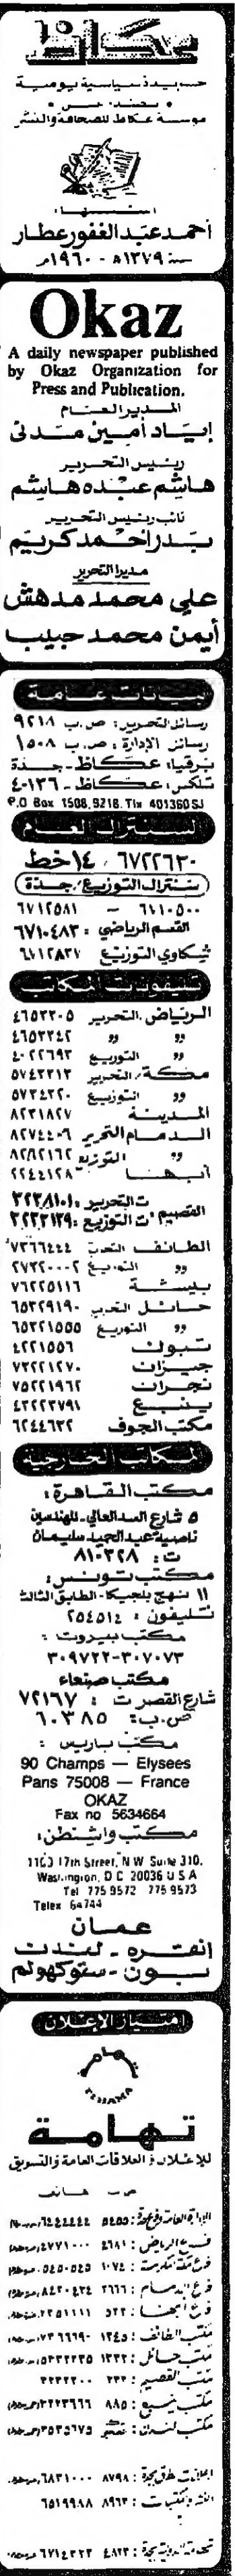 عكاظ
جريدة سياسية يومية
• تصدر عن •
مؤسسة عكاظ للصحافة والنشر
أسسها:
أحمد عبد الغفور عطار
سنة ١٣٧٩هـ - ١٩٦٠م
Okaz
A daily newspaper published
by Okaz Organization for
Press and Publication.
المدير العام
إياد أمين مدني
رئيس التحرير
هاشم عبده هاشم
نائب رئيس التحرير
مديرا التحرير
علي محمد مدهش
أيمن محمد حبيب
بيانات عامة
رسائل التحرير: ص.ب ٩٢١٨
رسائل الإدارة: ص.ب ١٥٠٨
برقيا: عكاظ - جدة
تلكس: عكاظ - ٤٠١٣٦٠
P.O Box 1508,9218. Tlx 401360 SJ
السنترال العام
٦٧٢٢٦٣٠ / ١٤ خط
سنترال التوزيع/جدة
٦١١٠٥٠٠ - ٦٧١٢٥٨١
القسم الرياضي: ٦٧١٠٤٨٣
شكاوي التوزيع ٦٧١٢٨٣٧
تليفونات المكاتب
الرياض التحرير ٤٦٥٣٢٠٥
,, ,, ٤٦٥٣٢٤٢
,, التوزيع ٤٠٢٢٦٩٣
مكة/التحرير ٥٧٤٣٣١٣
,, التوزيع ٥٧٣٤٣٢٠
المدينة ٨٢٣١٨٢٧
الدمام التحرير ٨٢٧٤٤٠٦
,, التوزيع
أبها ٢٢٤٤١٢٨
القصيم ت التحرير
ت التوزيع
الطائف التحرير ٧٣٦٦٤٤٤
,, التوزيع
بيشة ٧٦٢٢٥١١٦
حائل التحرير ٦٥٣٢٩١٩٠
,, التوزيع ٦٥٣٢١٥٥٥
تبوك ٤٢٢١٥٥٦
جيزان ٧٣٢٢١٢٧٠
نجران ٧٥٢٢١٩٦٢
ينبع ٤٣٢٢٣٧٩١
مكتب الجوف ٦٢٤٤٦٣٢
المكاتب الخارجية
مكتب القاهرة:
٥ شارع السد العالي - المهندسين
ناصية عبد الحميد سليمان
ت: ٨١٠٣٢٨
مكتب تونس:
١١ نهج بلجيكا - الطابق الثالث
تليفون: ٢٥٤٥١٤
مكتب بيروت:
٣٠٧٠٧٣-٣٠٩٧٢٢
مكتب صنعاء
شارع القصر ت: ٧٢١٦٧
ص.ب: ٦٠٣٨٥
مكتب باريس:
90 Champs — Elysees
Paris 75008 — France
OKAZ
Fax no 5634664
مكتب واشنطن:
1103 17th Street, N W Suite 310.
Washington, D C 20036 U S A
Tel 775 9572 775 9573
Telex 64744
عمان
أنقره - لندن
بون - ستوكهولم
امتياز الإعلان
تهامة
TIHAMA
تهامة
للإعلان والعلاقات العامة والتسويق
ص ب هاتف
الإدارة العامة وفرع جدة: ٥٤٥٥ ٦٤٤٤٤٤٤
فرع الرياض: ٤٦٨١
فرع مكة المكرمة: ١٠٧٤
فرع الدمام: ٢٦٦٦
فرع أبها: ٥٢٢ ٢٢٥١١١١
مكتب الطائف: ١٣٤٥
مكتب حائل: ١٣٣٢
مكتب القصيم:
مكتب ينبع: ٨٨٥
مكتب لندن:
إعلانات طرق جدة: ٨٧٩٨ ٦٨٣١٠٠٠
٨٩٦٣ ٦٥١٩٩٨٨
٤٨٢٣ ٦٧١٤٣٢٣